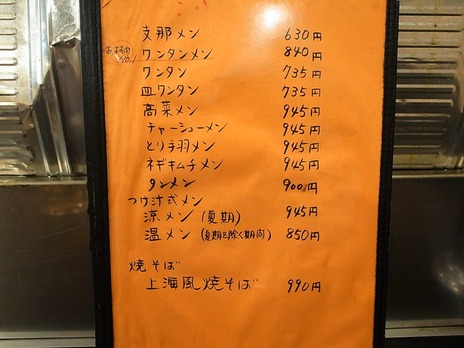 支那メン 630円
おすすめ No.1
ワンタンメン 840円
ワンタン 735円
皿ワンタン 735円
高菜メン 945円
チャーシューメン 945円
とり手羽メン 945円
ネギキムチメン 945円
タンメン 900円
つけ汁式メン
涼メン (夏期) 945円
温メン (夏期を除く期間) 850円
焼そば
上海風焼そば 990円